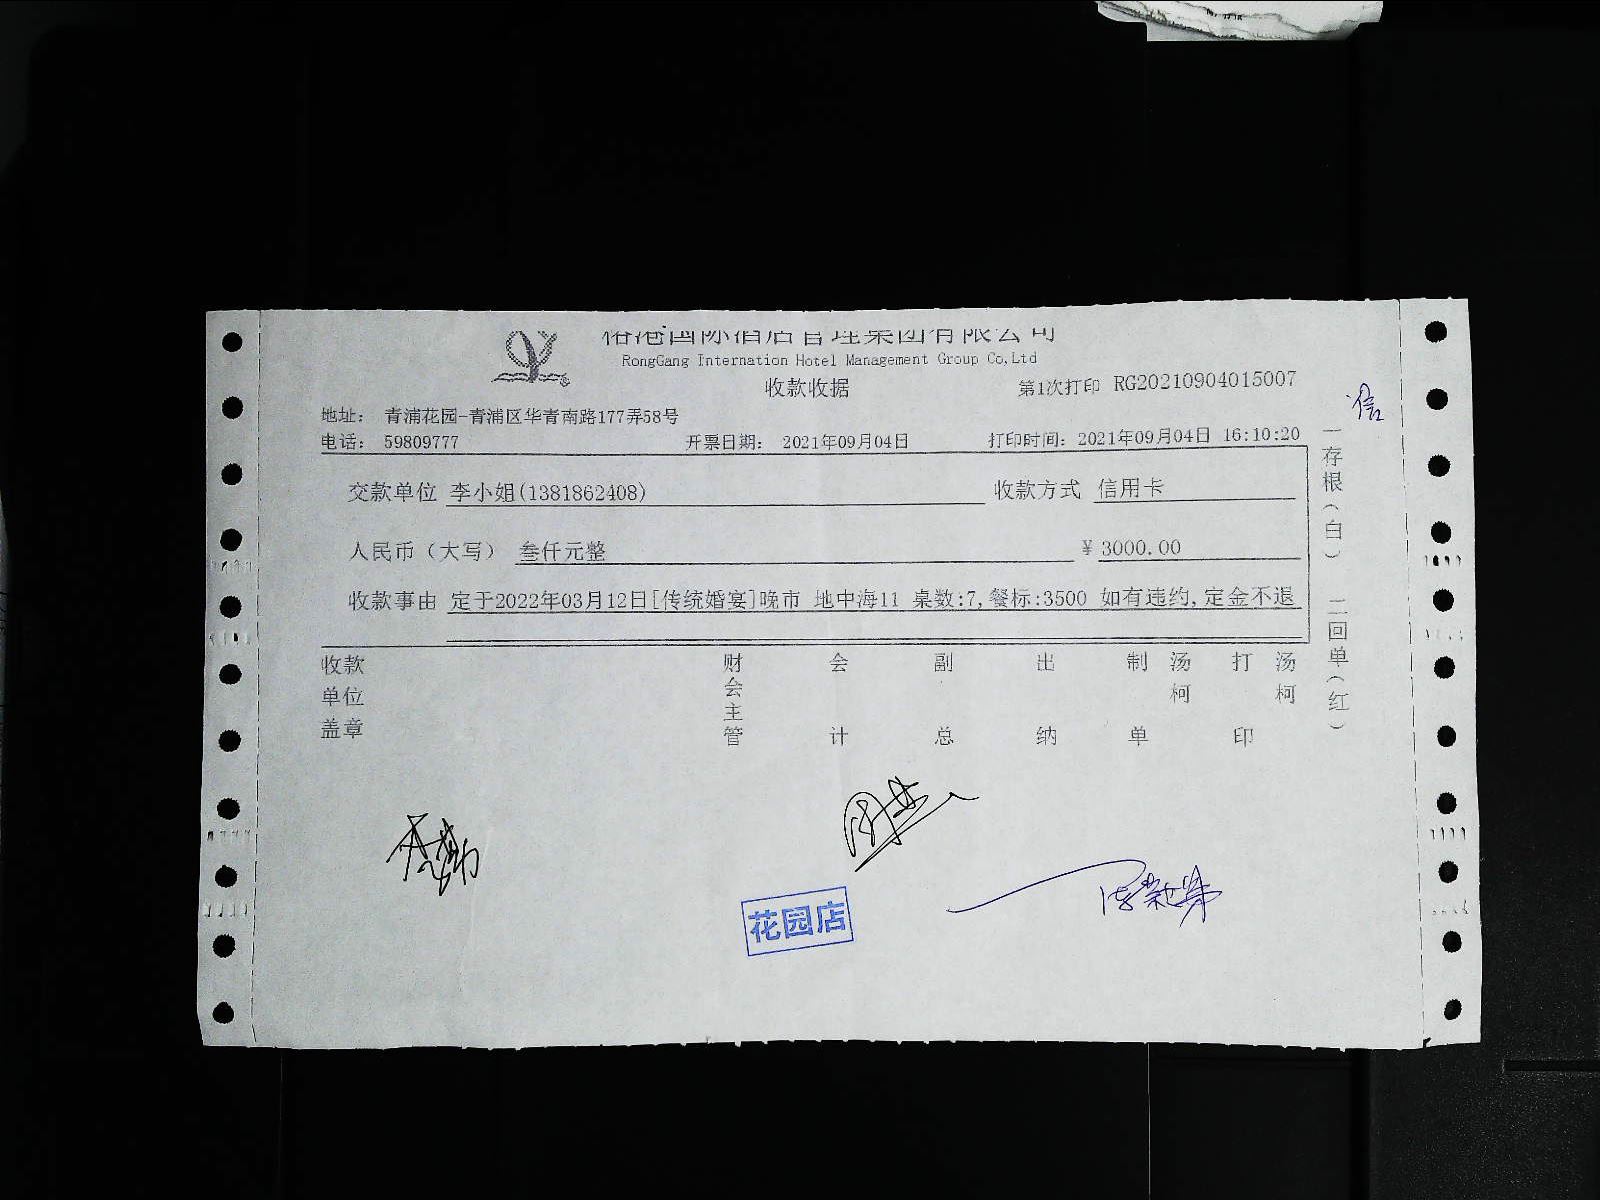 国际酒店管理集团有限公司
RongGang Internation Hotel Management Group Co,Ltd
收款收据
第1次打印 RG20210904015007
地址： 青浦花园-青浦区华青南路177弄58号
电话： 59809777 开票日期： 2021年09月04日 打印时间： 2021年09月04日 16:10:20
交款单位 李小姐(1381862408) 收款方式 信用卡
人民币（大写） 叁仟元整 ¥ 3000.00
收款事由 定于2022年03月12日[传统婚宴]晚市 地中海11 桌数:7,餐标:3500 如有违约,定金不退
收款单位盖章 财会主管 会计 副总 出纳 制单 汤柯 打印 汤柯
一存根（白） 二回单（红）
信
花园店